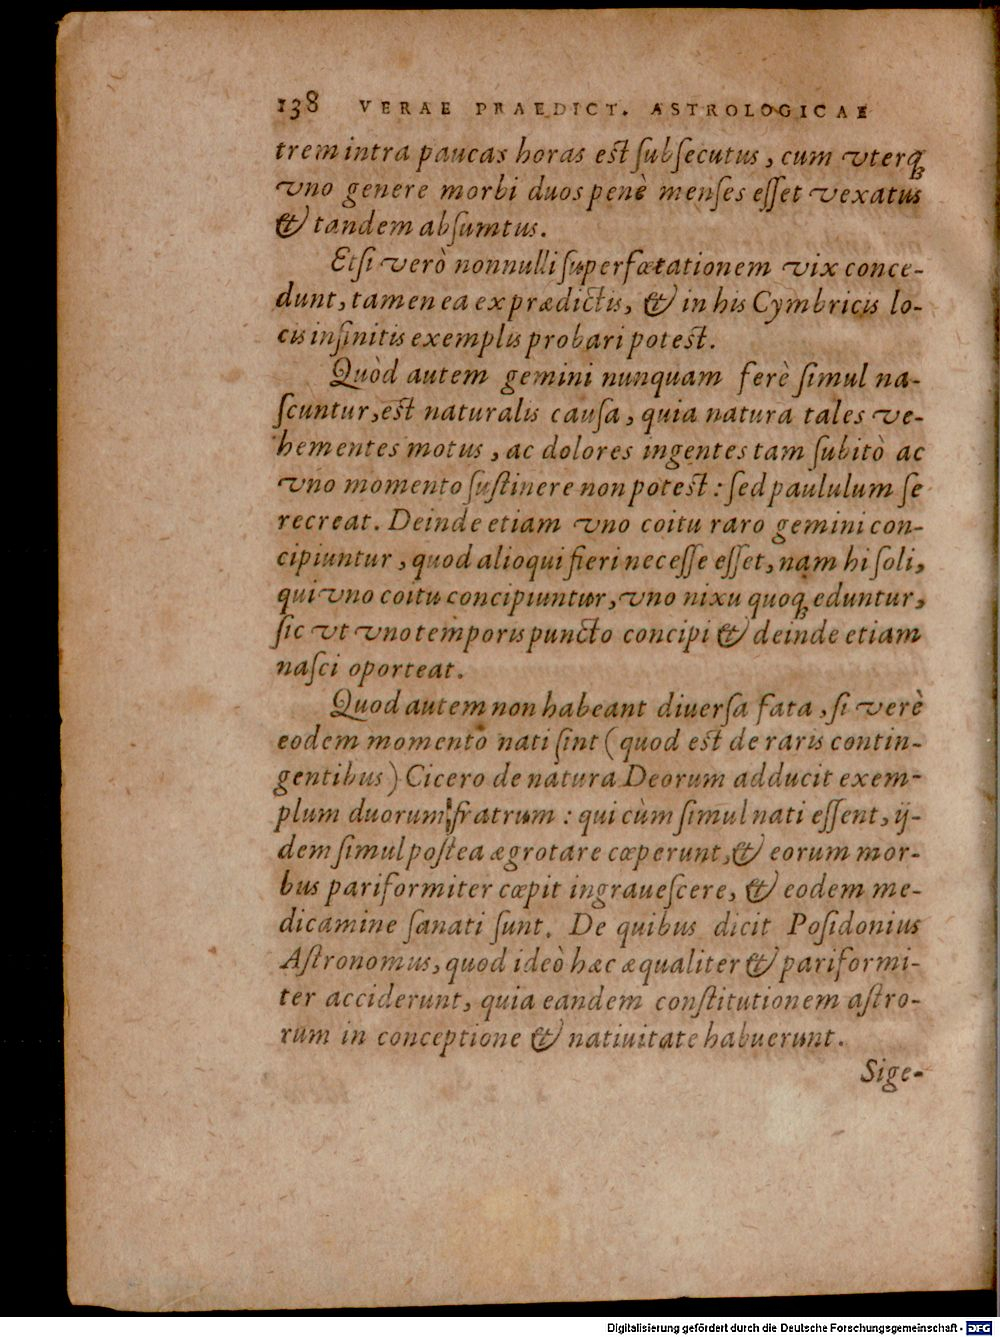 138 VERAE PRAEDICT. ASTROLOGICAE
trem intra paucas horas est ſubſecutus, cum vterq́;
vno genere morbi duos penè menſes eſſet vexatus
& tandem abſumtus.
Etſi verò nonnulli ſuperfœtationem vix conce-
dunt, tamen ea ex prædictis, & in his Cymbricis lo-
cis infinitis exemplis probari potest.
Quòd autem gemini nunquam ferè ſimul na-
ſcuntur, est naturalis cauſa, quia natura tales ve-
hementes motus, ac dolores ingentes tam ſubitò ac
vno momento ſuſtinere non potest: ſed paululum ſe
recreat. Deinde etiam vno coitu raro gemini con-
cipiuntur, quod alioqui fieri neceſſe eſſet, nam hi ſoli,
qui vno coitu concipiuntur, vno nixu quoq; eduntur,
ſic vt vno temporis puncto concipi & deinde etiam
naſci oporteat.
Quod autem non habeant diuerſa fata, ſi verè
eodem momento nati ſint (quod est de raris contin-
gentibus) Cicero de natura Deorum adducit exem-
plum duorum fratrum: qui cùm ſimul nati eſſent, ij-
dem ſimul poſtea ægrotare cœperunt, & eorum mor-
bus pariformiter cœpit ingraueſcere, & eodem me-
dicamine ſanati ſunt. De quibus dicit Poſidonius
Aſtronomus, quod ideò hæc æqualiter & pariformi-
ter acciderunt, quia eandem conſtitutionem aſtro-
rum in conceptione & natiuitate habuerunt.
Sige-
Digitalisierung gefördert durch die Deutsche Forschungsgemeinschaft - DFG